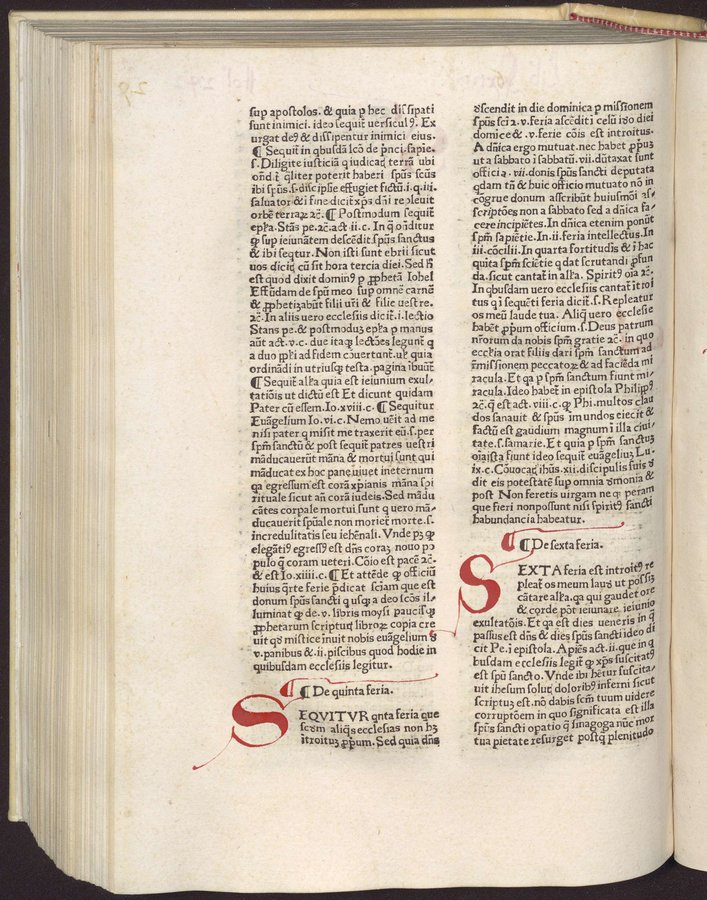 sup apostolos. & quia p hec dissipati
sunt inimici. ideo sequit̄ versicul9. Ex
urgat de9 & dissipentur inimici eius.
¶ Sequit̄ in qbusdā lcō de p̄nci. sapie.
s. Diligite iusticiā q iudicat̄ terrā ubi
ōnd. i q̄liter poterit haberi sp̄us scūs
ibi sp̄us. s. disciplīe effugiet fictū. i. q. iii.
saluator & i fine dicit xp̄s dn̄i repleuit
orbē terraꝝ ⁊c̄. ¶ Postmodum sequit̄
epl̄a. Stās pe. ⁊c̄. act ii. c. In q̄ ōnditur
q sup ieiunātem descēdit sp̄us sanctus
& ibi seqtur. Non isti sunt ebrii sicut
uos dicit̄ cū sit hora tercia diei. Sed h̄
est quod dixit domin9 p p̄phetā Iohel
Effūdam de sp̄u meo sup omnē carnē
& p̄phetizabūt filii ur̄i & filie uestre.
⁊c̄. In aliis uero ecclesiis dicit̄. i. lectio
Stans pe. & postmodū epl̄a p manus
aūt act. v. c. due itaq lectōes legunt̄ q
a duo pp̄li ad fidem cōuertunt̄. ul̄ quia
ordinādi in utriusq testa. pagina ibuūt̄
¶ Sequit̄ all̄a quia est ieiunium exul-
tatiōis ut dictū est Et dicunt quidam
Pater cū essem. Io. xviii. c. ¶ Sequitur
Euāgelium Io. vi. c. Nemo uēit ad me
nisi pater q misit me traxerit eū. s. per
sp̄m sanctū & post sequit̄ patres uestri
māducauerūt māna & mortui sunt qui
māducat ex hoc pane uiuet in eternum
qa egressum est corā xp̄ianis māna spi
rituale sicut an̄ corā iudeis. Sed mādu
cātes corpale mortui sunt q uero mā-
ducauerit sp̄uale non moriet̄ morte. s.
incredulitatis seu iehēnali. Vnde pꝫ q
elegāti9 egress9 est dn̄s coraꝫ nouo po
pulo q̄ coram ueteri. Cōio est pacē ⁊c̄.
& est Io. xiiii. c. ¶ Et attēde q officiū
huius q̄rte ferie p̄dicat sciam que est
donum sp̄us sancti q usq a deo scōs il-
luminat q de. v. libris moysi paucisq
p̄phetarum scriptur̄ libroꝝ copia cre
uit qd̄ mistice innuit nobis euāgelium d̄
v. panibus & .ii. piscibus quod hodie in
quibusdam ecclesiis legitur.
¶ De quinta feria.
SEQVITVR qnta feria que
scd̄m aliq̄s ecclesias non hꝫ
itroituꝫ p̄pum. Sed quia dn̄s
descendit in die dominica p missionem
sp̄us scī ⁊ .v. feria ascēdit ī celū iō diei
domice & .v. ferie cōis est introitus.
A dn̄ica ergo mutuat̄. nec habet p̄puꝫ
ut a sabbato ī sabbatū. vii. dūtaxat sunt
officia. vii. donis sp̄us sancti deputata
qdam tn̄ & huic officio mutuato nō in
cōgrue donum ascribūt huiusmōi as-
scriptōes non a sabbato sed a dn̄ica fa-
cere incipiētes. In dn̄ica etenim ponūt
sp̄m sapiētie. In .ii. feria intellectus. In
iii. cōcilii. In quarta fortitudīs & i hac
quita sp̄m sciētie q dat scrutandi p̄fun
da. sicut cantat̄ in all̄a. Spirit9 oīa ⁊c̄.
In qbusdam uero ecclesiis cantat̄ it̄roi
tus q ī sequēti feria dicit̄. s. Repleatur
os meū laude tua. Aliq̄ uero ecclesie
habēt p̄pum officium. s. Deus patrum
nr̄orum da nobis sp̄m gratie ⁊c̄. in quo
eccl̄ia orat filiis dari sp̄m sanctum ad
r̄missionem peccatoꝝ & ad faciēda mi
racula. Et qa p sp̄m sanctum fiunt mi-
racula. Ideo habet̄ in epistola Philipp9
⁊c̄. q̄ est act. viii. c. q Phi. multos clau
dos sanauit & sp̄us imundos eiecit &
factū est gaudium magnum ī illa ciui-
tate. s. samarie. Et quia p sp̄m sanctuꝫ
oīa ista fiunt ideo sequit̄ euāgeliuꝫ Lu.
ix. c. Cōuocat̄ ihūs. xii. discipulis suis d̄
dit eis potestatē sup omnia dēmonia &
post Non feretis uirgam neq peram
que fieri non possunt nisi spirit9 sancti
habundancia habeatur.
¶ De sexta feria.
SEXTA feria est introit9 re
pleat̄ os meum laud̄ ut possiꝫ
cātare all̄a. qa qui gaudet ore
& corde pōt ieiunare ieiunio
exultatōis. Et qa est dies ueneris in q
passus est dn̄s & dies sp̄us sancti ideo di
cit Pe. i epistola. Apiēs act. ii. que in q
busdam ecclesiis legit̄ q xp̄s suscitat9
est sp̄u sancto. Vnde ibi hētur suscita-
uit ihesum solut̄ dolorib9 inferni sicut
scriptuꝫ est. nō dabis scm̄ tuum uidere
corruptōem in quo significata est illa
sp̄us sancti opatio q sinagoga nūc mor
tua pietate resurget postq plenitudo